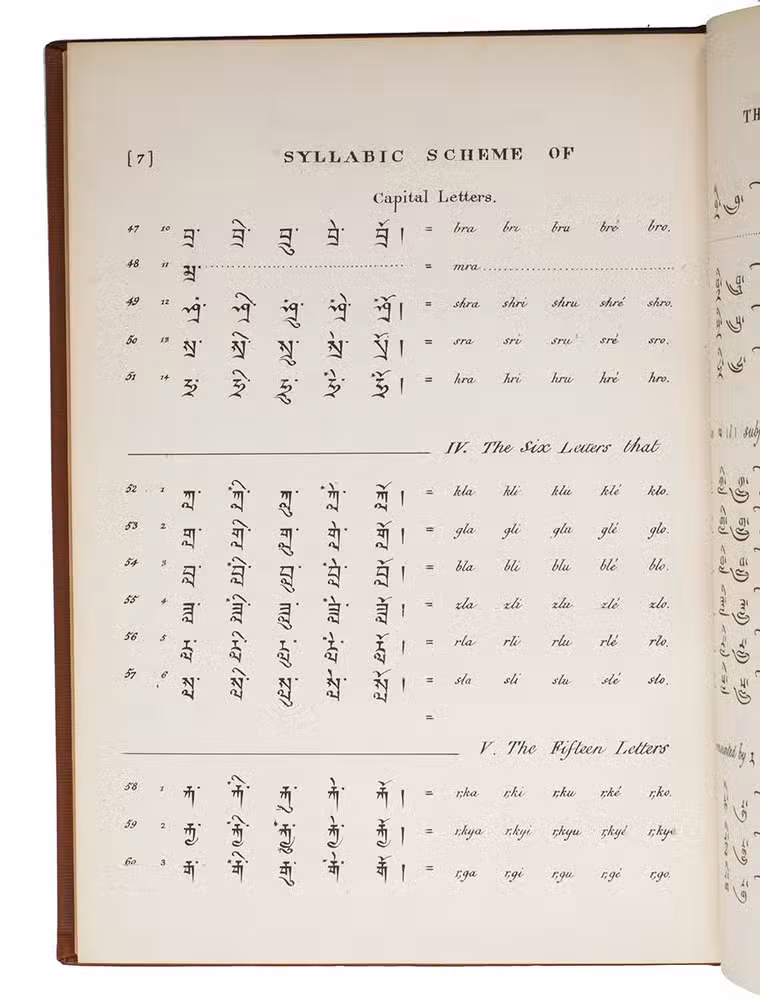 [7] SYLLABIC SCHEME OF
Capital Letters.
47 10 བྲ་ བྲི་ བྲུ་ བྲེ་ བྲོ། = bra bri bru bré bro.
48 11 མྲ་ = mra
49 12 ཤྲ་ ཤྲི་ ཤྲུ་ ཤྲེ་ ཤྲོ། = shra shri shru shré shro.
50 13 སྲ་ སྲི་ སྲུ་ སྲེ་ སྲོ། = sra sri sru sré sro.
51 14 ཧྲ་ ཧྲི་ ཧྲུ་ ཧྲེ་ ཧྲོ། = hra hri hru hré hro.
IV. The Six Letters that
52 1 ཀླ་ ཀླི་ ཀླུ་ ཀླེ་ ཀློ། = kla kli klu klé klo.
53 2 གླ་ གླི་ གླུ་ གླེ་ གློ། = gla gli glu glé glo.
54 3 བླ་ བླི་ བླུ་ བླེ་ བློ། = bla bli blu blé blo.
55 4 ཟླ་ ཟླི་ ཟླུ་ ཟླེ་ ཟློ། = zla zli zlu zlé zlo.
56 5 རླ་ རླི་ རླུ་ རླེ་ རློ། = rla rli rlu rlé rlo.
57 6 སླ་ སླི་ སླུ་ སླེ་ སློ། = sla sli slu slé slo.
=
V. The Fifteen Letters
58 1 རྐ་ རྐི་ རྐུ་ རྐེ་ རྐོ། = r,ka r,ki r,ku r,ké r,ko.
59 2 རྐྱ་ རྐྱི་ རྐྱུ་ རྐྱེ་ རྐྱོ། = r,kya r,kyi r,kyu r,kyé r,kyo
60 3 རྒ་ རྒི་ རྒུ་ རྒེ་ རྒོ། = r,ga r,gi r,gu r,gé r,go.